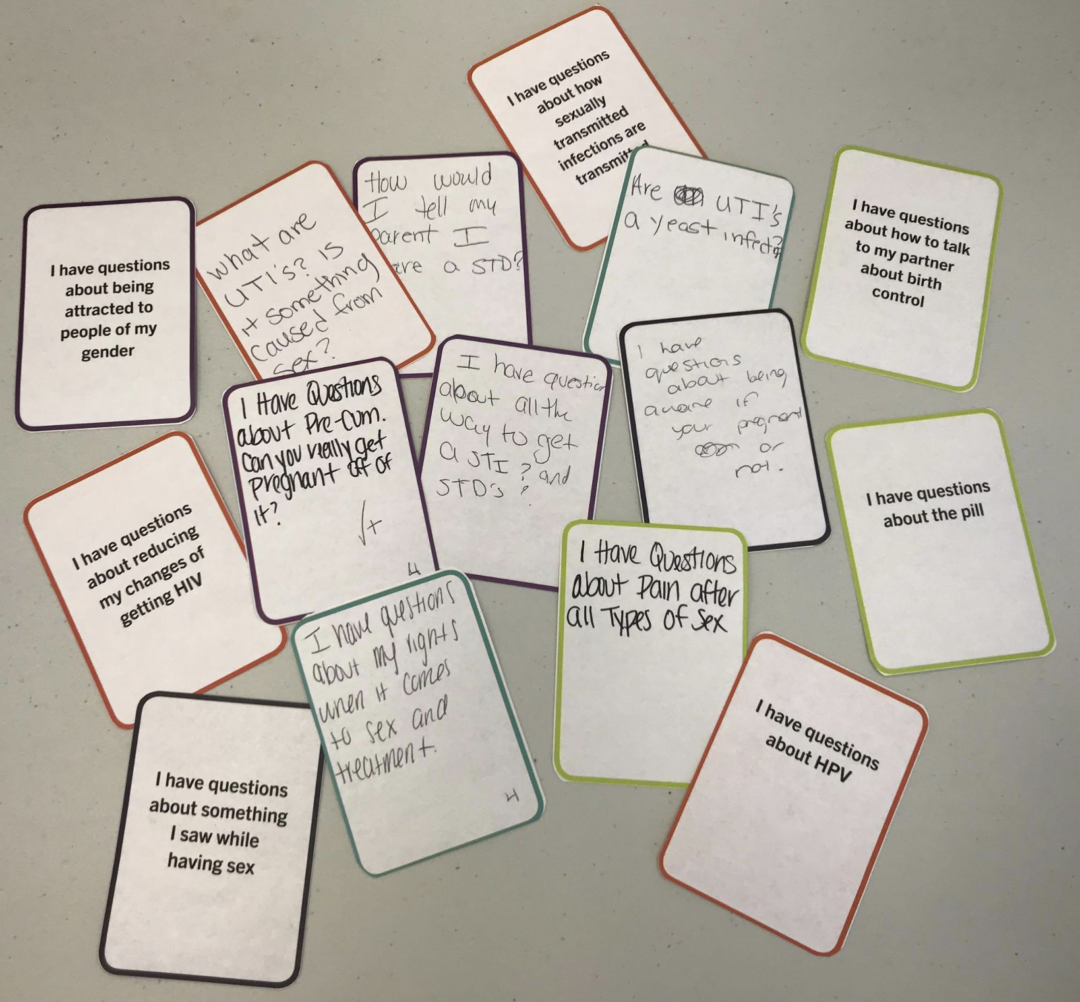 I have questions
about how
sexually
transmitted
infections are
How would
I tell my
parent I
a STD?
Are UTI's
a yeast infect?
I have questions
about how to talk
to my partner
about birth
control
I have questions
about being
attracted to
people of my
gender
What are
UTI's? Is
it something
caused from
sex?
I Have Questions
about Pre-Cum.
Can you really get
Pregnant off of
It?
√+
4
I have question
about all the
way to get
a STI? and
STD's?
I have
questions
about being
aware if
your pregnant
or
not.
I have questions
about the pill
I have questions
about reducing
my changes of
getting HIV
I have questions
about my rights
when it comes
to sex and
treatment.
4
I Have Questions
about Pain after
all Types of Sex
I have questions
about HPV
I have questions
about something
I saw while
having sex